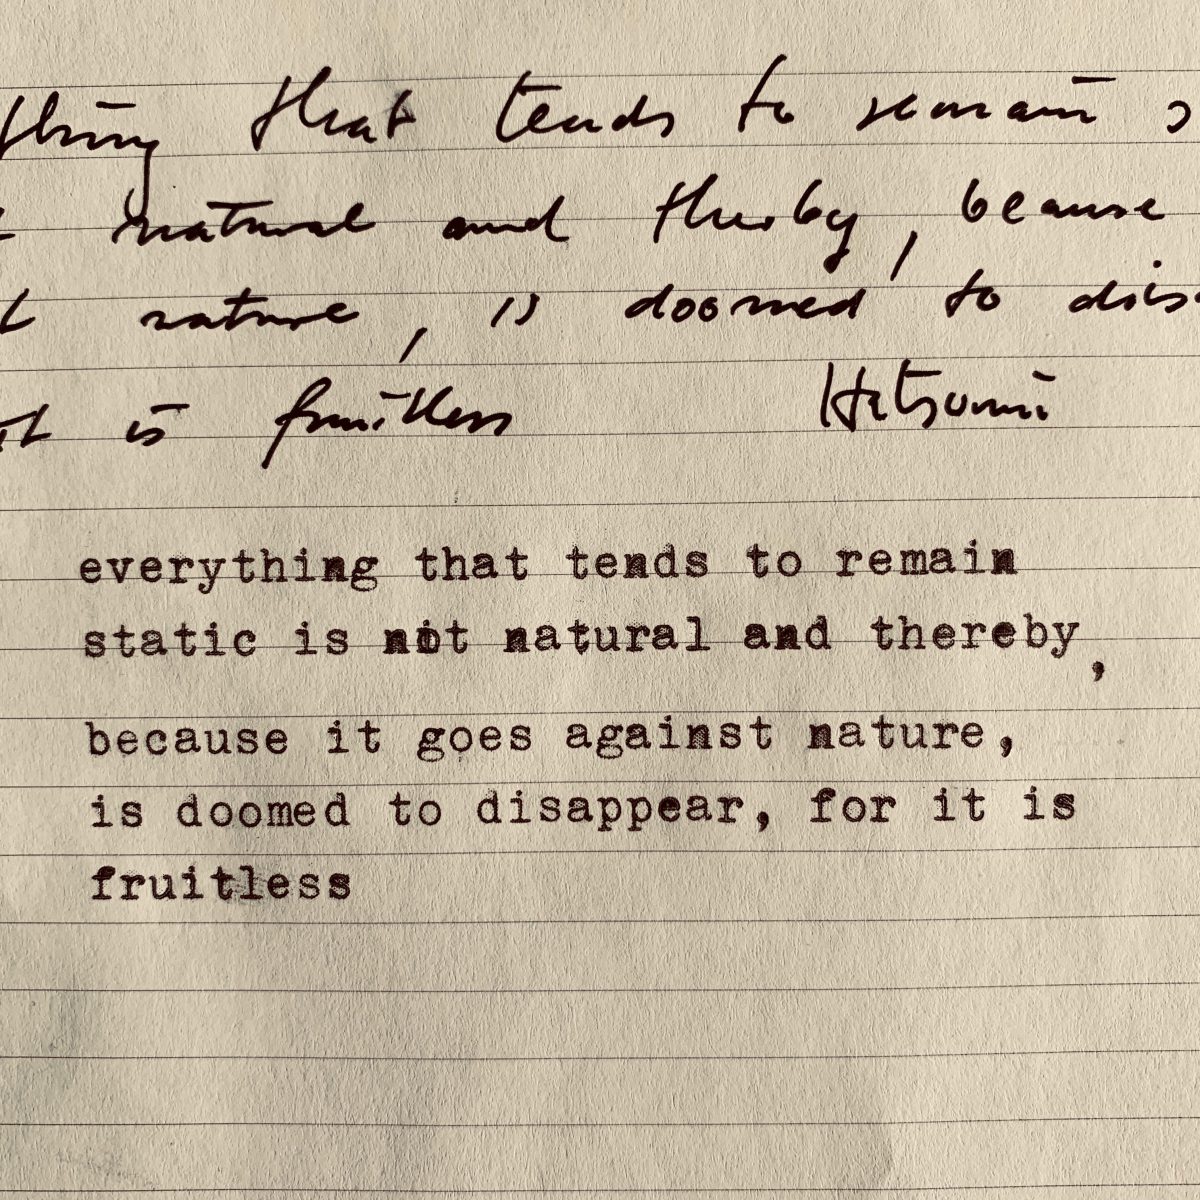 thing that tends to remain s
t natural and therby, because
t nature, is doomed to dis
it is fruitless Hitsumi
everything that tends to remain
static is not natural and thereby,
because it goes against nature,
is doomed to disappear, for it is
fruitless